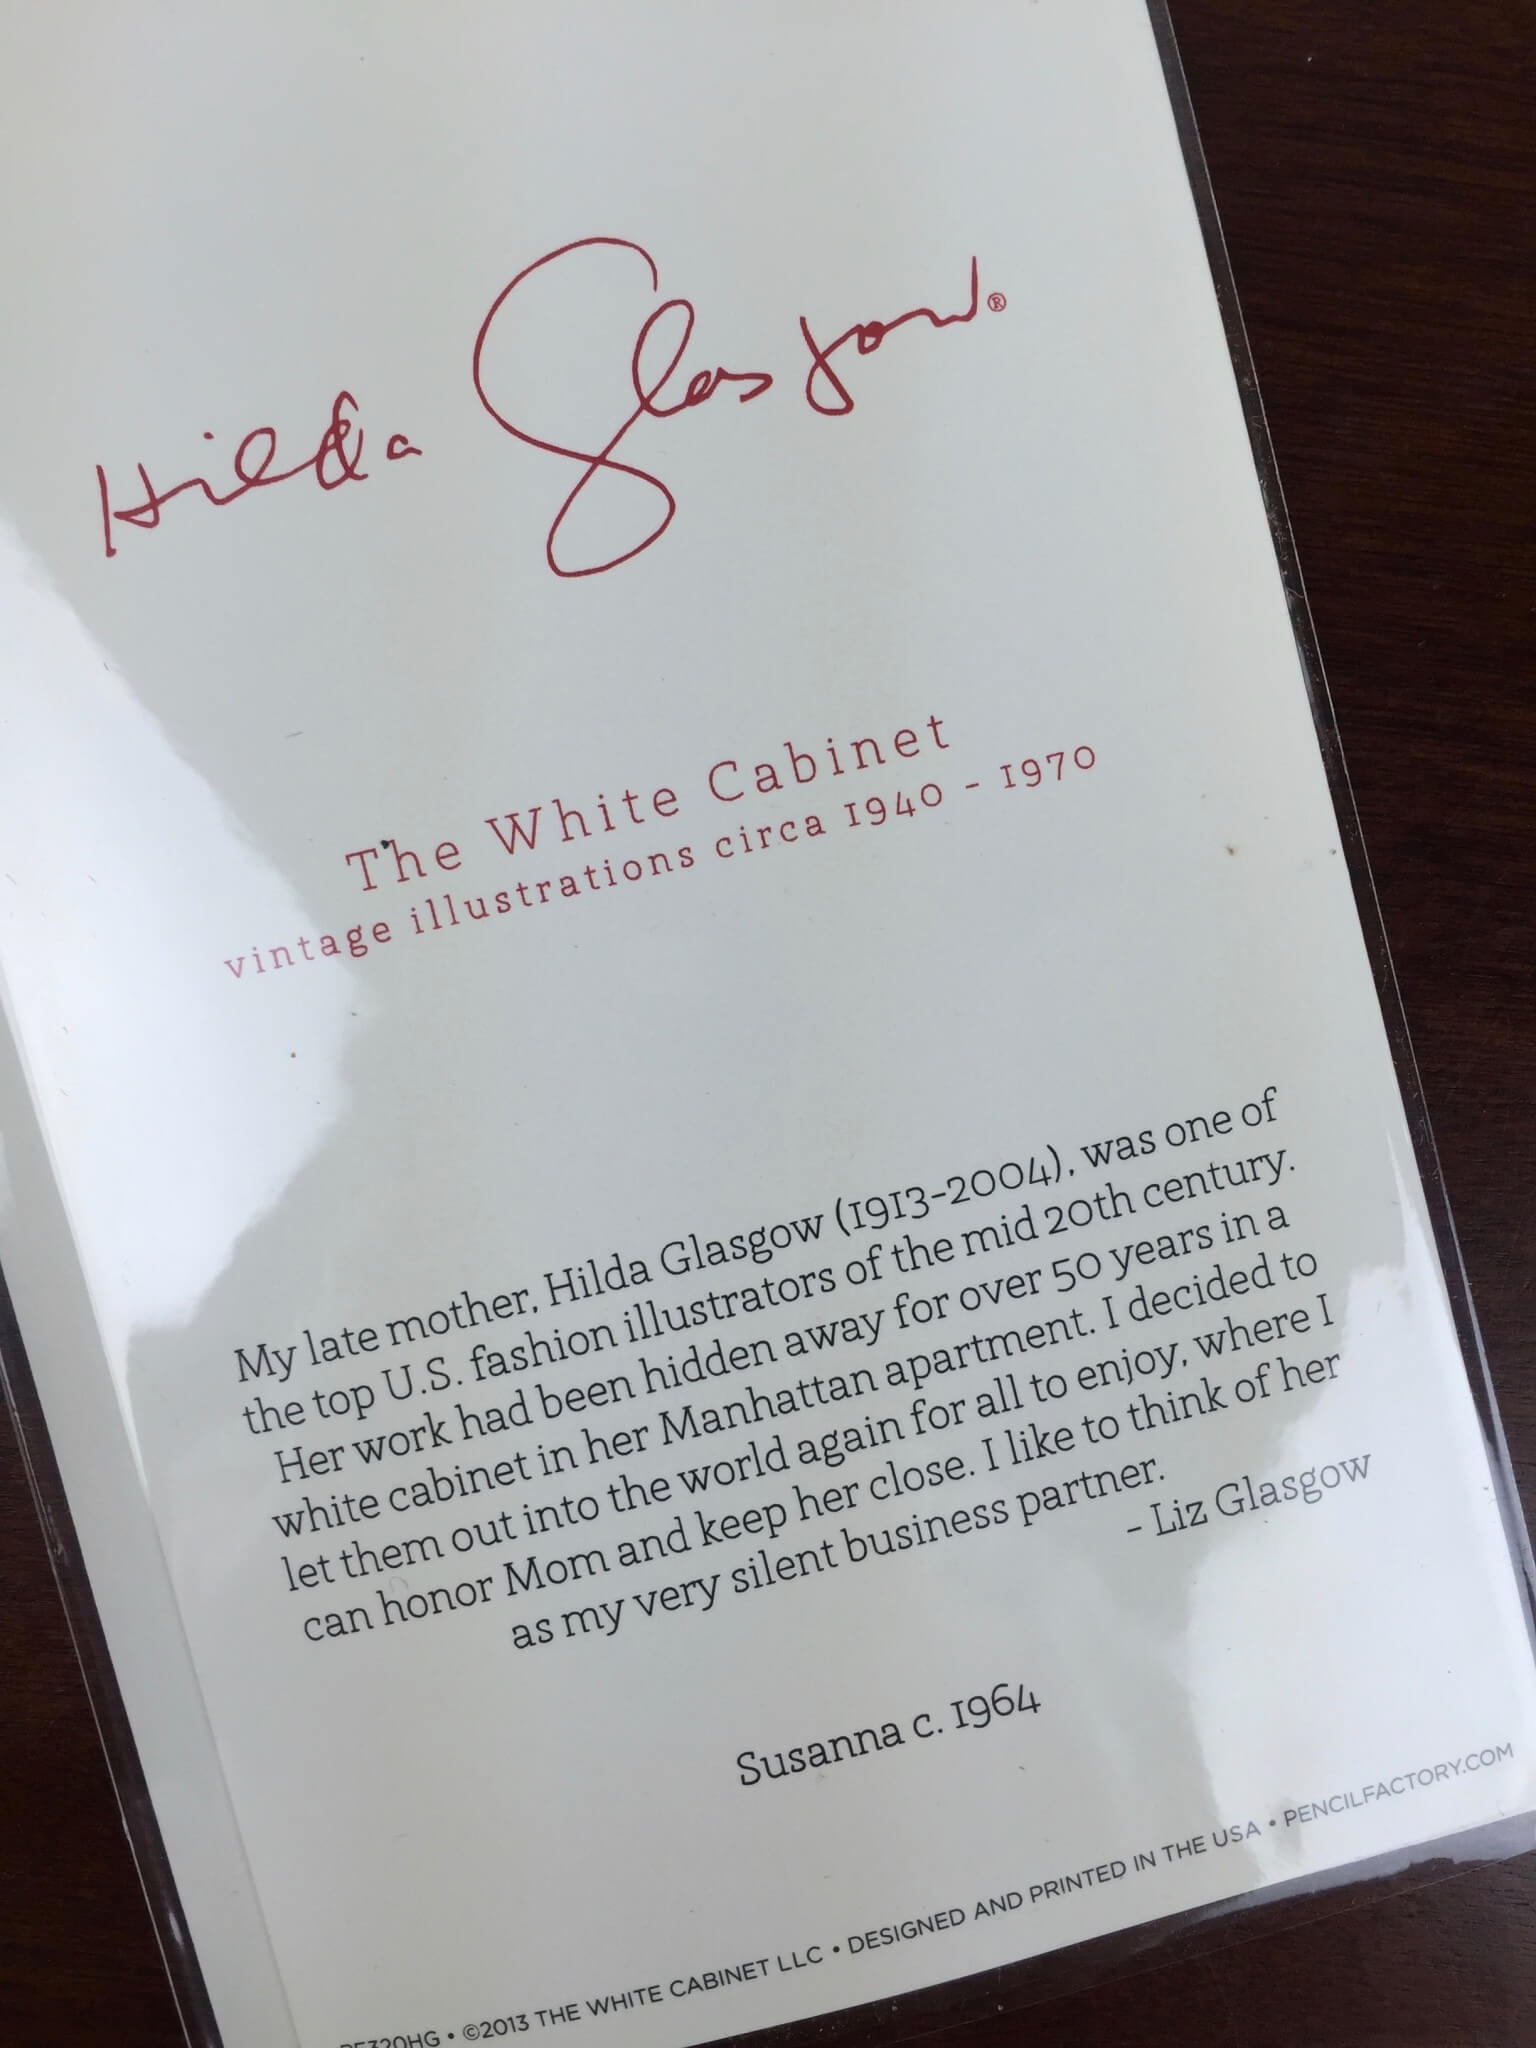 Hilda Glasgow®
The White Cabinet
vintage illustrations circa 1940 - 1970
My late mother, Hilda Glasgow (1913-2004), was one of
the top U.S. fashion illustrators of the mid 20th century.
Her work had been hidden away for over 50 years in a
white cabinet in her Manhattan apartment. I decided to
let them out into the world again for all to enjoy, where I
can honor Mom and keep her close. I like to think of her
as my very silent business partner.
- Liz Glasgow
Susanna c. 1964
•©2013 THE WHITE CABINET LLC • DESIGNED AND PRINTED IN THE USA • PENCILFACTORY.COM